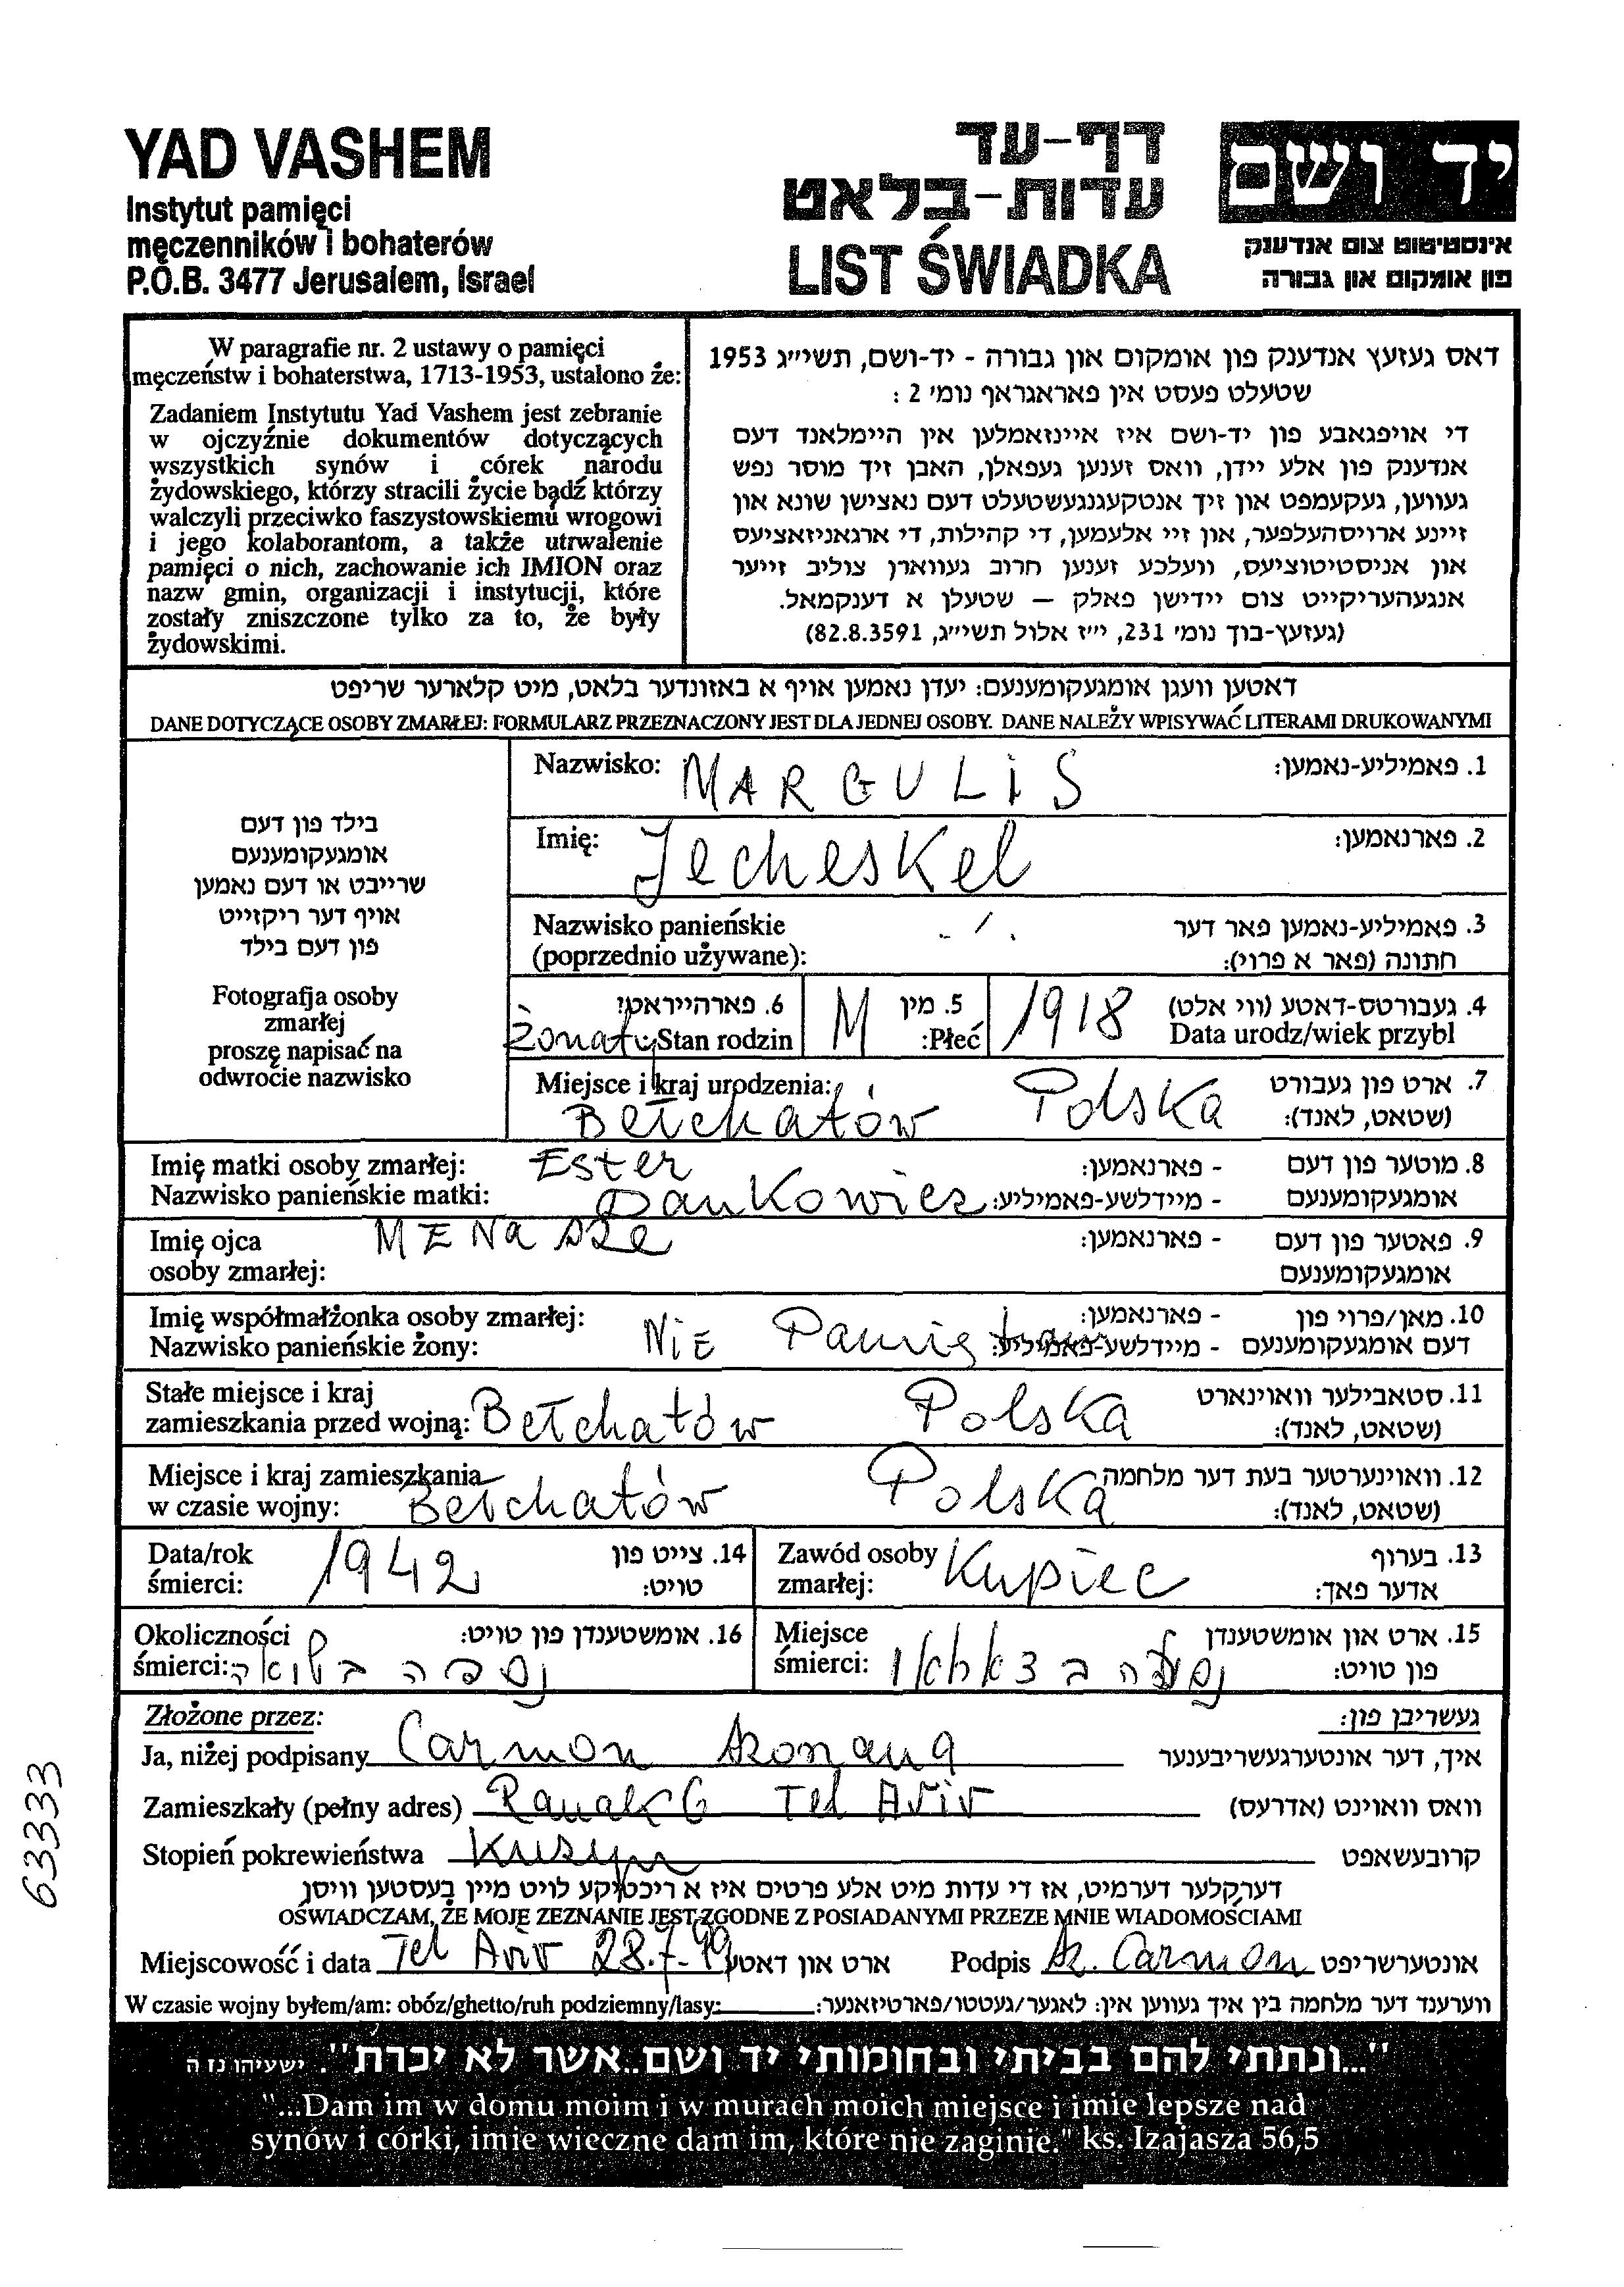 YAD VASHEM
Instytut pamięci
męczenników i bohaterów
P.O.B. 3477 Jerusalem, Israel
דף-עד
עדות-בלאט
LIST ŚWIADKA
יד ושם
אינסטיטוט צום אנדענק
פון אומקום און גבורה
W paragrafie nr. 2 ustawy o pamięci
męczeństw i bohaterstwa, 1713-1953, ustalono że:
Zadaniem Instytutu Yad Vashem jest zebranie
w ojczyźnie dokumentów dotyczących
wszystkich synów i córek narodu
żydowskiego, którzy stracili życie bądź którzy
walczyli przeciwko faszystowskiemu wrogowi
i jego kolaborantom, a także utrwalenie
pamięci o nich, zachowanie ich IMION oraz
nazw gmin, organizacji i instytucji, które
zostały zniszczone tylko za to, że były
żydowskimi.
דאס געזעץ אנדענק פון אומקום און גבורה - יד-ושם, תשי״ג 1953
שטעלט פעסט אין פאראגראף נומ׳ 2 :
די אויפגאבע פון יד-ושם איז איינזאמלען אין היימלאנד דעם
אנדענק פון אלע יידן, וואס זענען געפאלן, האבן זיך מוסר נפש
געווען, געקעמפט און זיך אנטקעגנגעשטעלט דעם נאצישן שונא און
זיינע ארויסהעלפער, און זיי אלעמען, די קהילות, די ארגאניזאציעס
און אניסטיטוציעס, וועלכע זענען חרוב געווארן צוליב זייער
אנגעהעריקייט צום יידישן פאלק – שטעלן א דענקמאל.
(געזעץ-בוך נומ׳ 231, י״ז אלול תשי״ג, 82.8.3591)
דאטען וועגן אומגעקומענעם: יעדן נאמען אויף א באזונדער בלאט, מיט קלארער שריפט
DANE DOTYCZĄCE OSOBY ZMARŁEJ: FORMULARZ PRZEZNACZONY JEST DLA JEDNEJ OSOBY. DANE NALEŻY WPISYWAĆ LITERAMI DRUKOWANYMI
בילד פון דעם
אומגעקומענעם
שרייבט או דעם נאמען
אויף דער ריקזייט
פון דעם בילד
Fotografja osoby
zmarłej
proszę napisać na
odwrocie nazwisko
Nazwisko: MARGULIS 1. פאמיליע-נאמען:
Imię: Jecheskel 2. פארנאמען:
Nazwisko panieńskie ./. 3. פאמיליע-נאמען פאר דער
(poprzednio używane): חתונה (פאר א פרוי):
6. פארהייראט! Żonaty Stan rodzin
5. מין M Płeć:
4. געבורטס-דאטע (ווי אלט) 1918 Data urodz/wiek przybl
Miejsce i kraj urodzenia: Bełchatów Polska 7. ארט פון געבורט
(שטאט, לאנד):
Imię matki osoby zmarłej: Ester - פארנאמען: 8. מוטער פון דעם
Nazwisko panieńskie matki: Dankowicz - מיידלשע-פאמיליע: אומגעקומענעם
Imię ojca MENASZE - פארנאמען: 9. פאטער פון דעם
osoby zmarłej: אומגעקומענעם
Imię współmałżonka osoby zmarłej: - פארנאמען: 10. מאן/פרוי פון
Nazwisko panieńskie żony: Nie Pamiętam - מיידלשע-פאמיליע: דעם אומגעקומענעם
Stałe miejsce i kraj 11. סטאבילער וואוינארט
zamieszkania przed wojną: Bełchatów Polska (שטאט, לאנד):
Miejsce i kraj zamieszkania 12. וואוינערטער בעת דער מלחמה
w czasie wojny: Bełchatów Polska (שטאט, לאנד):
Data/rok śmierci: 1942 14. צייט פון טויט:
Zawód osoby zmarłej: Kupiec 13. בערוף אדער פאך:
Okoliczności śmierci: נספה בשואה 16. אומשטענדן פון טויט:
Miejsce śmierci: 15. ארט און אומשטענדן פון טויט:
Złożone przez: געשריבן פון:
Ja, niżej podpisany Carmon איך, דער אונטערגעשריבענער
Zamieszkały (pełny adres) Tel Aviv וואס וואוינט (אדרעס)
Stopień pokrewieństwa Kuzyn קרובעשאפט
דערקלער דערמיט, אז די עדות מיט אלע פרטים איז א ריכטיקע לויט מיין בעסטען וויסן
OŚWIADCZAM, ŻE MOJE ZEZNANIE JEST ZGODNE Z POSIADANYMI PRZEZE MNIE WIADOMOŚCIAMI
Miejscowość i data Tel Aviv 28.7-99 ארט און דאטע Podpis Sz. Carmon אונטערשריפט
W czasie wojny byłem/am: obóz/ghetto/ruh podziemny/lasy: ווערענד דער מלחמה בין איך געווען אין: לאגער/געטטו/פארטיזאנער:
"...ונתתי להם בביתי ובחומותי יד ושם..אשר לא יכרת". ישעיהו נז ה
"...Dam im w domu moim i w murach moich miejsce i imie lepsze nad
synów i córki, imie wieczne dam im, które nie zaginie." ks. Izajasza 56,5
63333